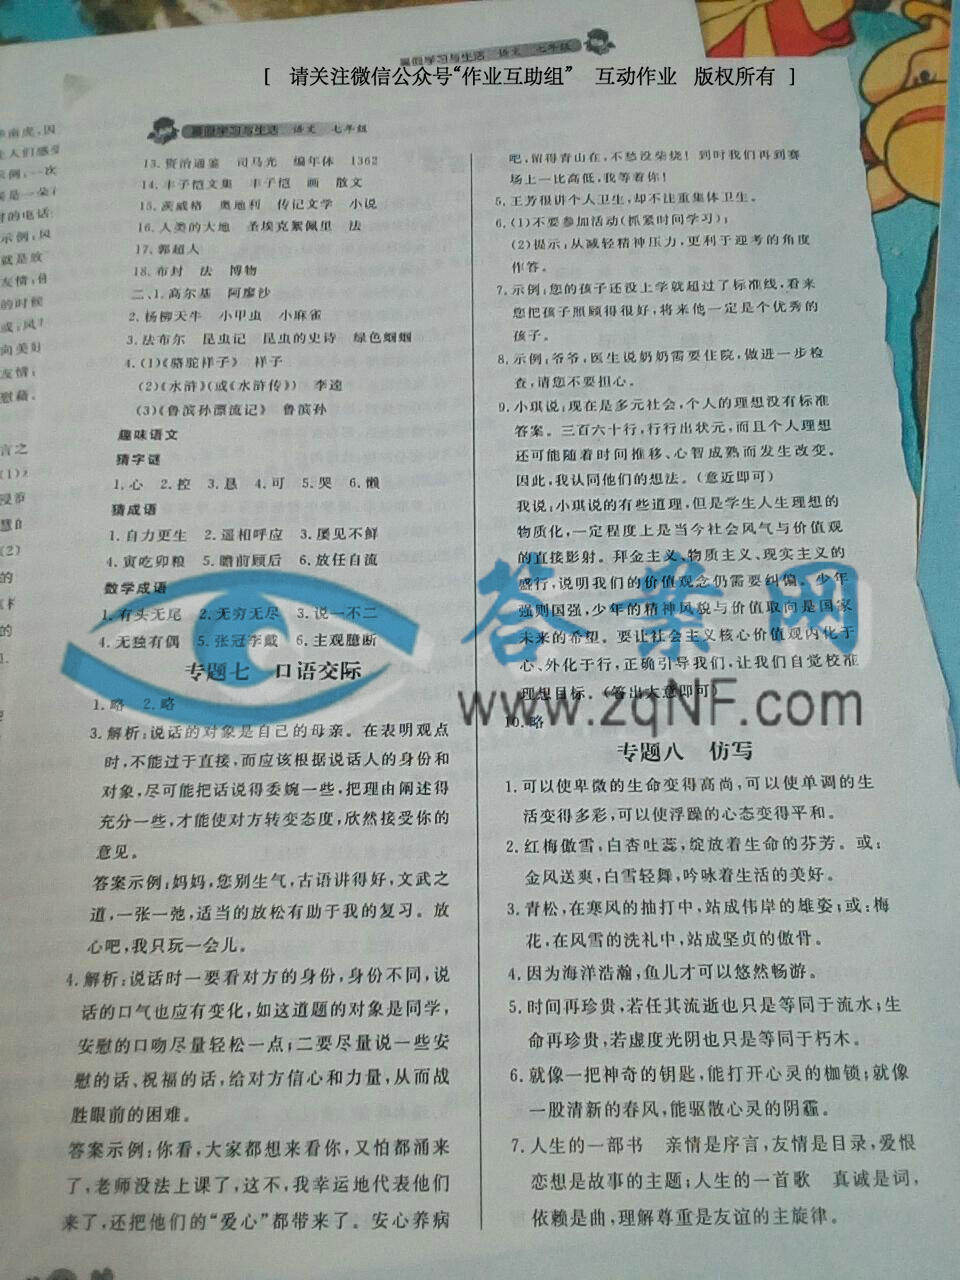 暑假学习与生活 语文 七年级
[ 请关注微信公众号“作业互助组” 互动作业 版权所有 ]
暑假学习与生活 语文 七年级
13. 资治通鉴 司马光 编年体 1362
14. 丰子恺文集 丰子恺 画 散文
15. 茨威格 奥地利 传记文学 小说
16. 人类的大地 圣埃克絮佩里 法
17. 郭超人
18. 布封 法 博物
二、1. 高尔基 阿廖沙
2. 杨柳天牛 小甲虫 小麻雀
3. 法布尔 昆虫记 昆虫的史诗 绿色蝈蝈
4. (1)《骆驼祥子》 祥子
(2)《水浒》(或《水浒传》) 李逵
(3)《鲁滨孙漂流记》 鲁滨孙
趣味语文
猜字谜
1. 心 2. 控 3. 恳 4. 可 5. 哭 6. 懒
猜成语
1. 自力更生 2. 遥相呼应 3. 屡见不鲜
4. 寅吃卯粮 5. 瞻前顾后 6. 放任自流
数学成语
1. 有头无尾 2. 无穷无尽 3. 说一不二
4. 无独有偶 5. 张冠李戴 6. 主观臆断
专题七 口语交际
1. 略 2. 略
3. 解析:说话的对象是自己的母亲。在表明观点
时,不能过于直接,而应该根据说话人的身份和
对象,尽可能把话说得委婉一些,把理由阐述得
充分一些,才能使对方转变态度,欣然接受你的
意见。
答案示例:妈妈,您别生气,古语讲得好,文武之
道,一张一弛,适当的放松有助于我的复习。放
心吧,我只玩一会儿。
4. 解析:说话时一要看对方的身份,身份不同,说
话的口气也应有变化,如这道题的对象是同学,
安慰的口吻尽量轻松一点;二要尽量说一些安
慰的话、祝福的话,给对方信心和力量,从而战
胜眼前的困难。
答案示例:你看,大家都想来看你,又怕都涌来
了,老师没法上课了,这不,我幸运地代表他们
来了,还把他们的“爱心”都带来了。安心养病
吧,留得青山在,不愁没柴烧!到时我们再到赛
场上一比高低,我等着你!
5. 王芳很讲个人卫生,却不注重集体卫生。
6. (1)不要参加活动(抓紧时间学习);
(2)提示:从减轻精神压力,更利于迎考的角度
作答。
7. 示例:您的孩子还没上学就超过了标准线,看来
您把孩子照顾得很好,将来他一定是个优秀的
孩子。
8. 示例:爷爷,医生说奶奶需要住院,做进一步检
查,请您不要担心。
9. 小琪说:现在是多元社会,个人的理想没有标准
答案。三百六十行,行行出状元,而且个人理想
还可能随着时间推移、心智成熟而发生改变。
因此,我认同他们的想法。(意近即可)
我说:小琪说的有些道理,但是学生人生理想的
物质化,一定程度上是当今社会风气与价值观
的直接影射。拜金主义、物质主义、现实主义的
盛行,说明我们的价值观念仍需要纠偏。少年
强则国强,少年的精神风貌与价值取向是国家
未来的希望。要让社会主义核心价值观内化于
心、外化于行,正确引导我们,让我们自觉校准
理想目标。(答出大意即可)
10. 略
专题八 仿写
1. 可以使卑微的生命变得高尚,可以使单调的生
活变得多彩,可以使浮躁的心态变得平和。
2. 红梅傲雪,白杏吐蕊,绽放着生命的芬芳。或:
金风送爽,白雪轻舞,吟咏着生活的美好。
3. 青松,在寒风的抽打中,站成伟岸的雄姿;或:梅
花,在风雪的洗礼中,站成坚贞的傲骨。
4. 因为海洋浩瀚,鱼儿才可以悠然畅游。
5. 时间再珍贵,若任其流逝也只是等同于流水;生
命再珍贵,若虚度光阴也只是等同于朽木。
6. 就像一把神奇的钥匙,能打开心灵的枷锁;就像
一股清新的春风,能驱散心灵的阴霾。
7. 人生的一部书 亲情是序言,友情是目录,爱恨
恋想是故事的主题;人生的一首歌 真诚是词,
依赖是曲,理解尊重是友谊的主旋律。
答案网
www.zqNF.com